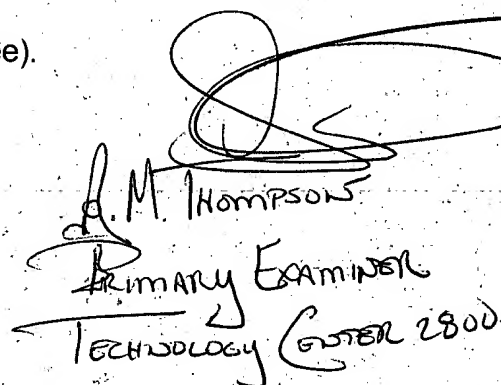 e).
A. M. THOMPSON
PRIMARY EXAMINER
TECHNOLOGY CENTER 2800